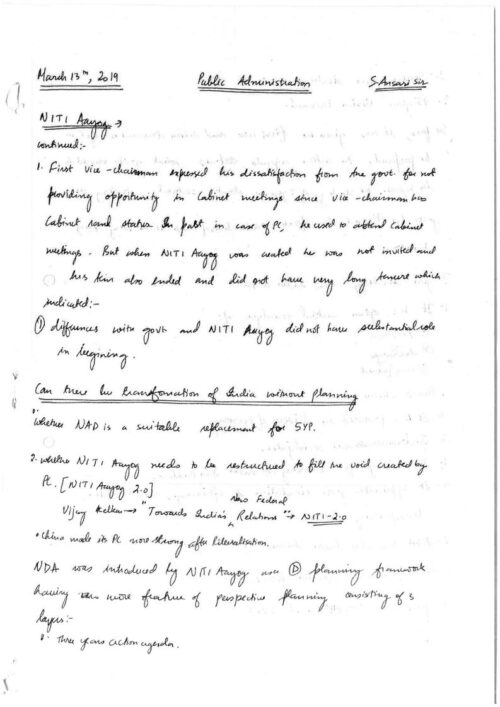 March 13th, 2019 Public Administration S. Ansari sir
NITI Aayog →
continued:-
1. First vice-chairman expressed his dissatisfaction from the govt. for not
providing opportunity in Cabinet meetings since vice-chairman has
Cabinet rank status. In past in case of PC, he used to attend Cabinet
meetings. But when NITI Aayog was created he was not invited and
his term also ended and did not have very long tenure which
indicated:-
① differences with govt and NITI Aayog did not have substantial role
in begining.
Can there be transformation of India without planning
1. whether NAD is a suitable replacement for 5YP.
2. whether NITI Aayog needs to be restructured to fill the void created by
PC. [NITI Aayog 2.0]
New Federal
Vijay Kelkar → "Towards India's Relations" → NITI-2.0
• China made its PC more strong after liberalisation.
NDA was introduced by NITI Aayog as planning framework
having more feature of perspective planning consisting of 3
layers:-
1. Three years action agenda.